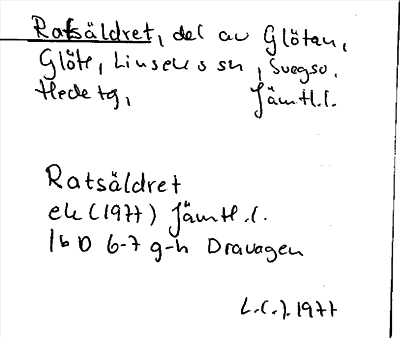 Ratsäldret, del av Glötan,
Glöte, Linsells sn, Svegs o.
Hede tg, Jämtl.l.
Ratsäldret
ek (1977) Jämtl.l.
16 D 6-7 g-h Dravagen
L.C.J. 1977